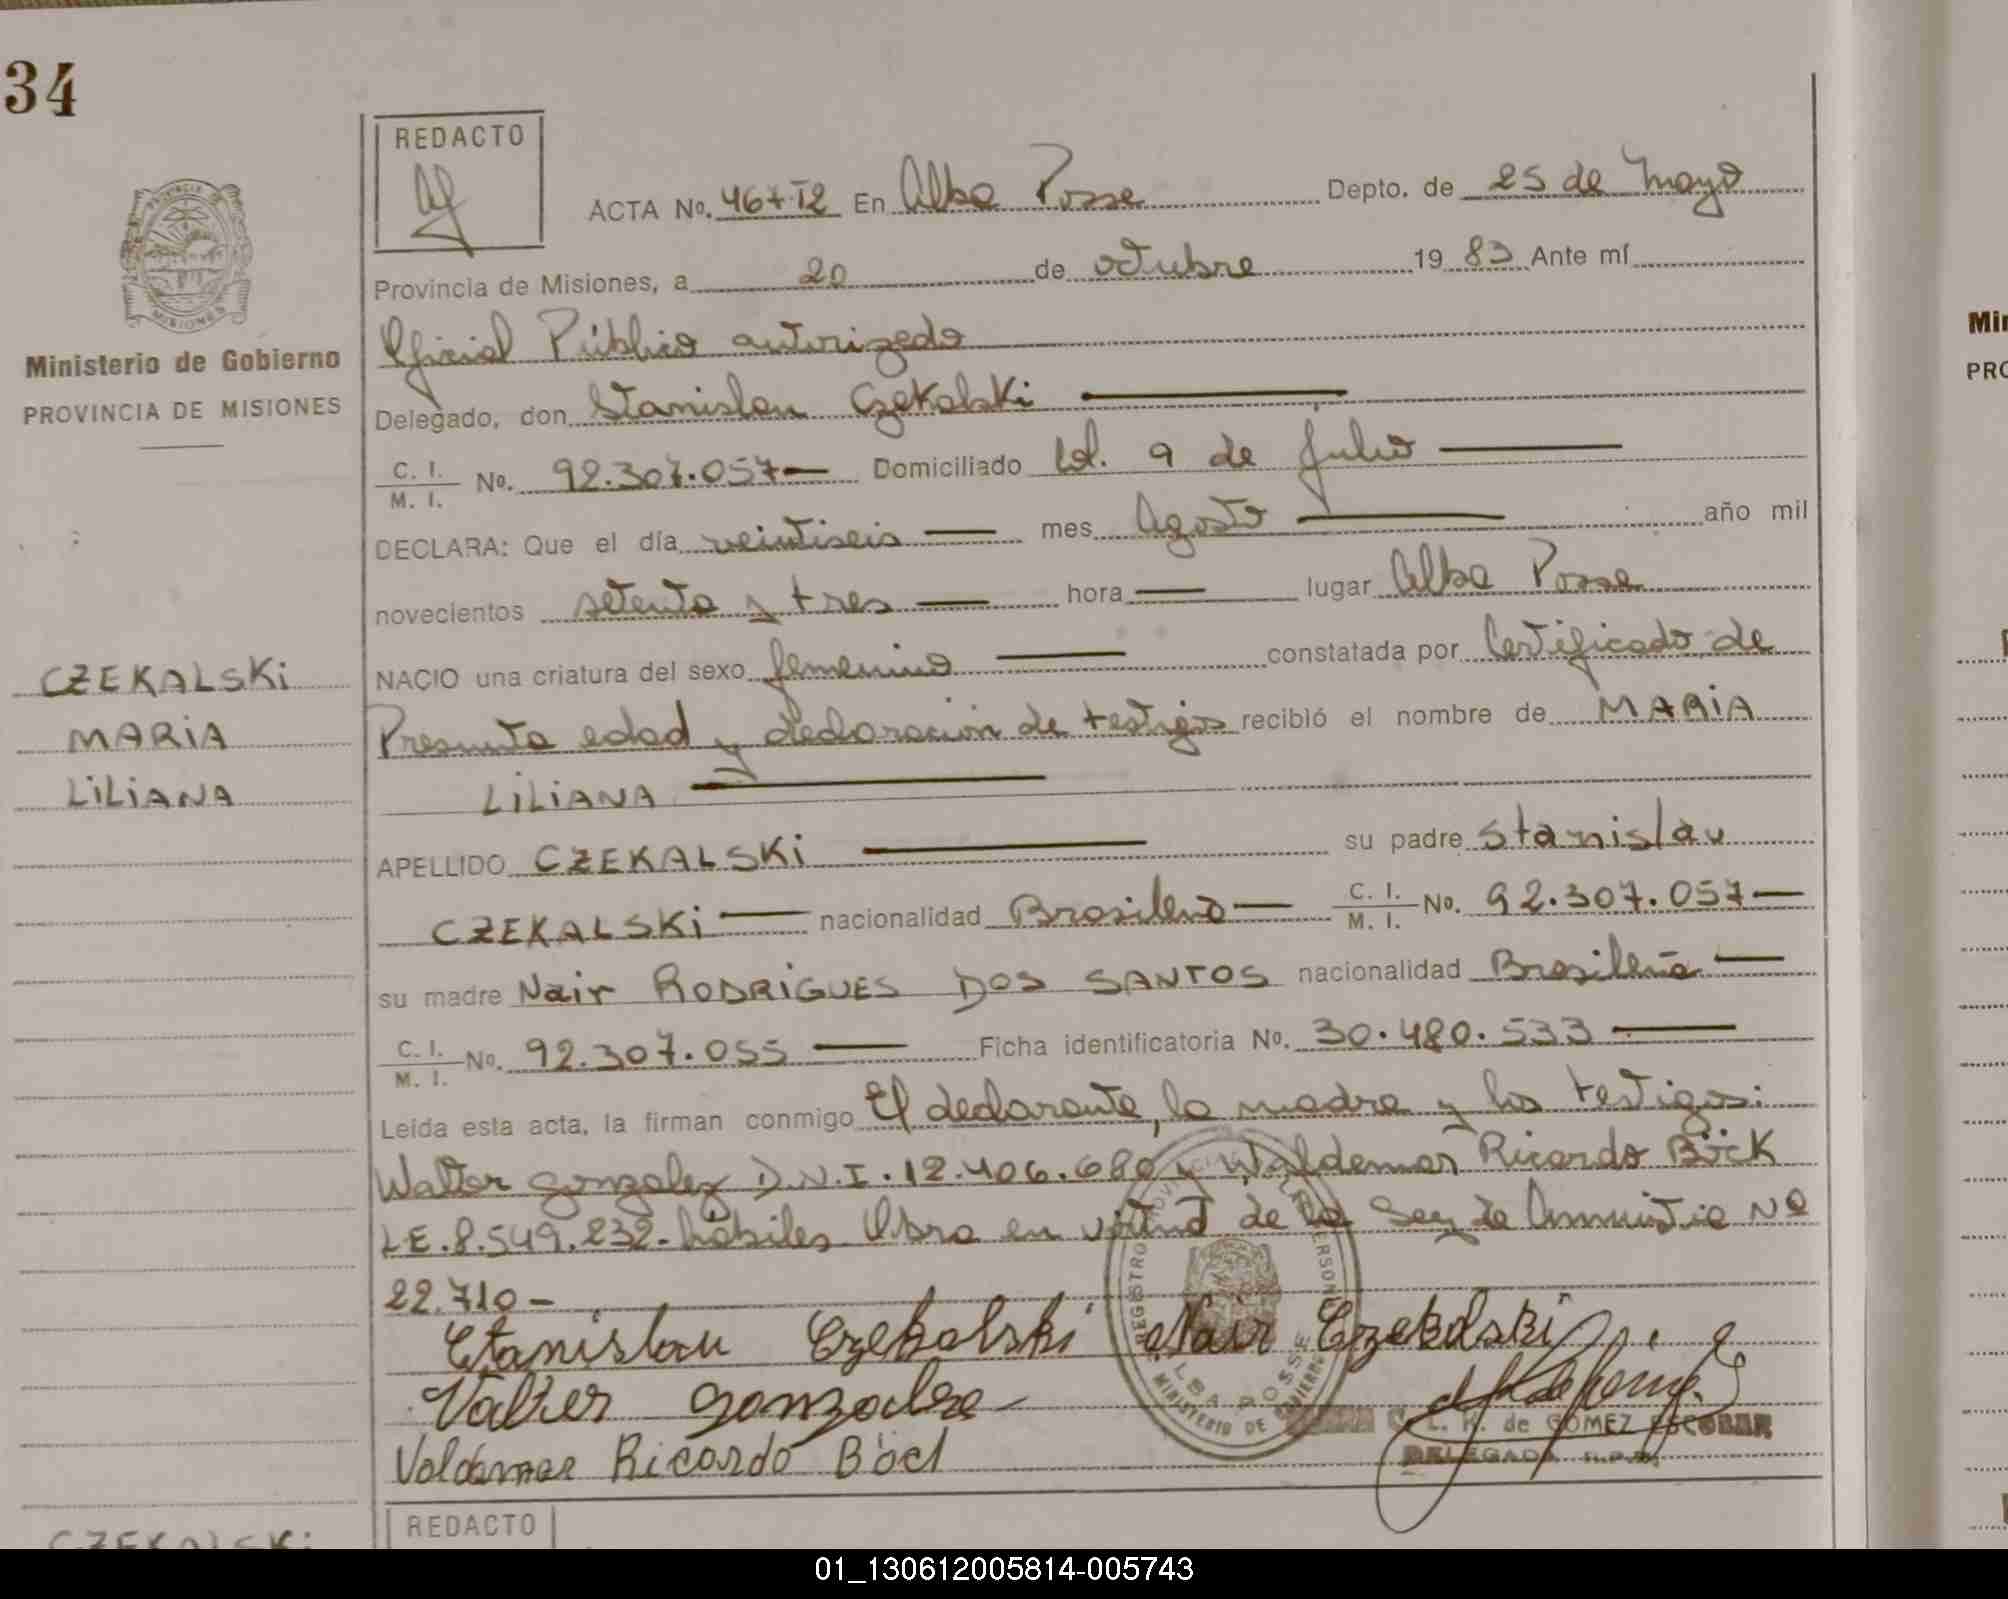 34
REDACTO
ACTA No. 467-T2 En Alba Posse Depto. de 25 de Mayo
Provincia de Misiones, a 20 de octubre 1983 Ante mí
Oficial Público autorizado
Ministerio de Gobierno
PROVINCIA DE MISIONES
Delegado, don Stanislau Czekalski
C. I. / M. I. No. 92.307.057 Domiciliado Col. 9 de Julio
DECLARA: Que el día veintiseis mes Agosto año mil
novecientos setenta y tres hora lugar Alba Posse
NACIO una criatura del sexo femenino constatada por Certificado de
Presunta edad y declaración de testigos recibió el nombre de MARIA
LILIANA
CZEKALSKi
MARIA
LILIANA
APELLIDO CZEKALSKi su padre Stanislau
CZEKALSKi nacionalidad Brasileño C. I. / M. I. No. 92.307.057
su madre Nair RODRIGUES DOS SANTOS nacionalidad Brasileña
C. I. / M. I. No. 92.307.055 Ficha identificatoria No. 30.480.533
Leída esta acta, la firman conmigo El declarante, la madre y los testigos:
Walter Gonzalez D.N.I. 12.406.680 y Waldemar Ricardo Böck
LE. 8.549.232- hábiles Obra en virtud de la Ley de Amnistia Nº
22.710-
Stanislau Czekalski Nair Czekalski
Valter Gonzalez
Valdemar Ricardo Böcl
de GOMEZ ESCOBAR
DELEGADA
REGISTRO
ALBA POSSE
MINISTERIO DE GOBIERNO
REDACTO
CZEKALSKi
Min
PRO
01_130612005814-005743